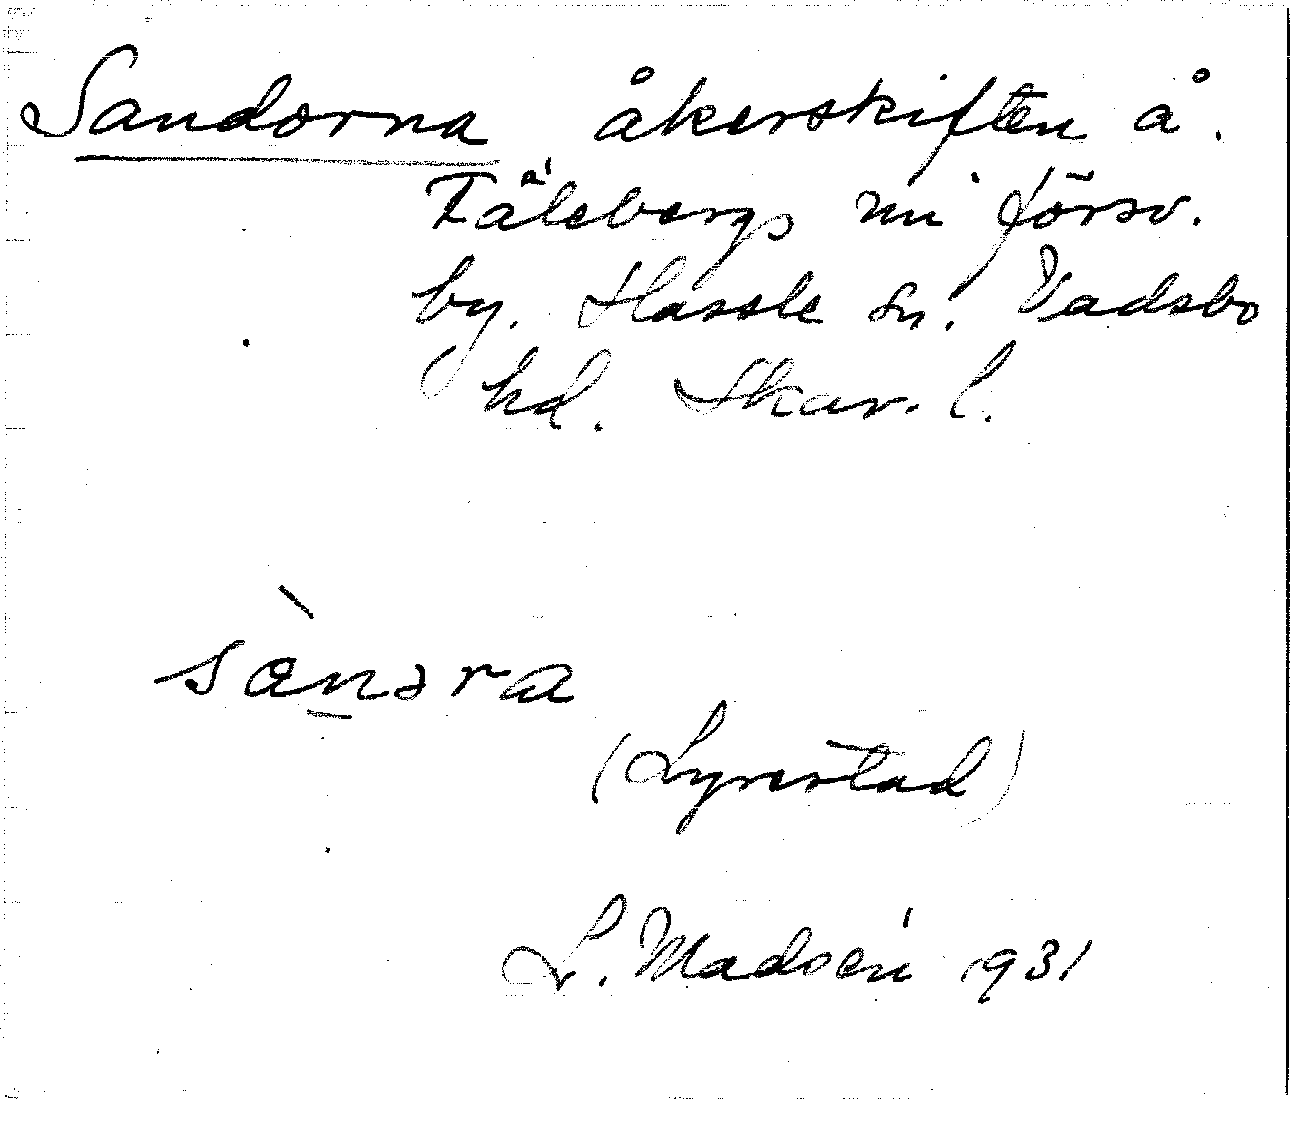 Sandorna åkerskiften å.
Fälebergs nu försv.
by. Hassle sn. Vadsbo
hd. Skar. l.
sànəra
(Lyrestad)
L. Madsén 1931